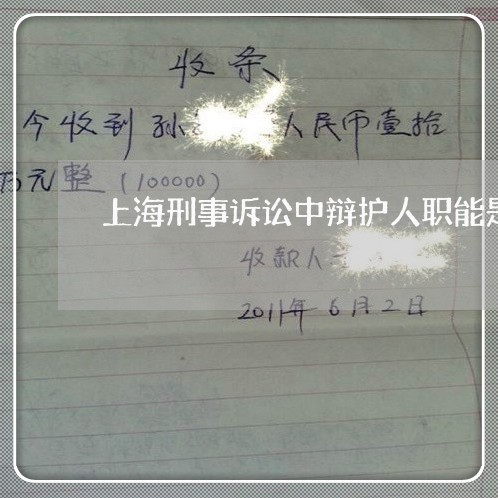 收条
今收到孙 人民币壹拾
万元整（100000）
上海刑事诉讼中辩护人职能是
收款人
2011年6月2日